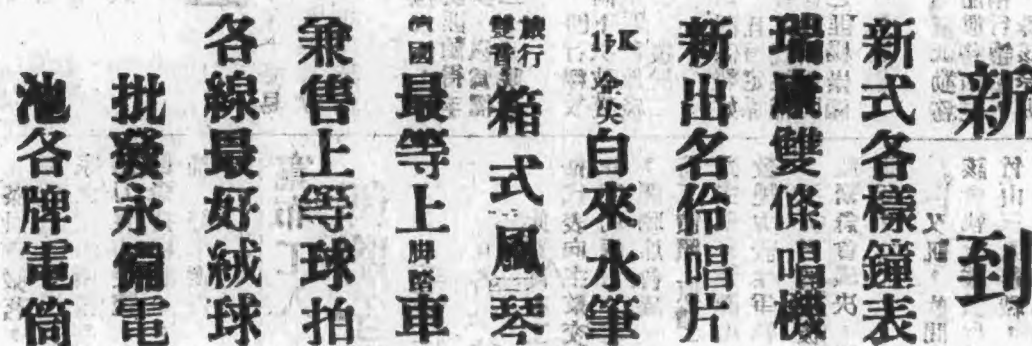 新到
新式各樣鐘表
瑞康雙條唱機
新出名伶唱片
14K金尖自來水筆
旅行雙音箱式風琴
德國最上等腳踏車
兼售上等球拍
各線最好絨球
批發永備電
池各牌電筒